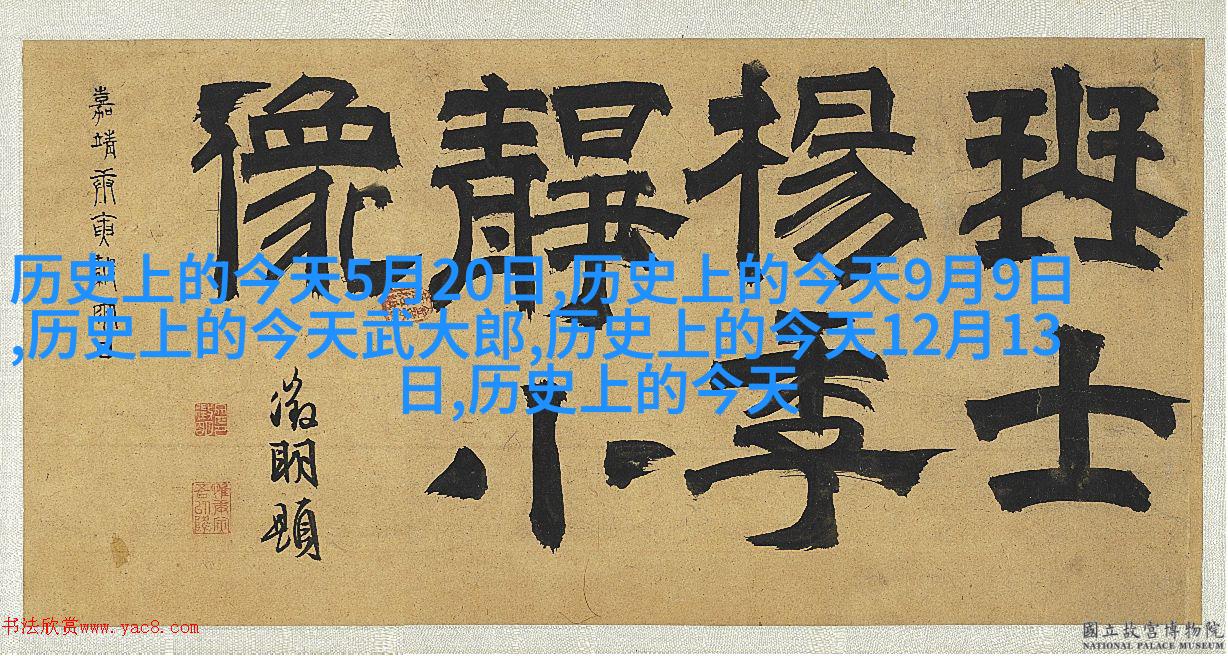 历史上的今天5月20日,历史上的今天9月9日
,历史上的今天武大郎,历史上的今天12月13
日,历史上的今天
班士
楊季
靜小
像
徵明題
嘉靖庚寅
书法欣赏www.yac8.com
國立故宮博物院
NATIONAL PALACE MUSEUM